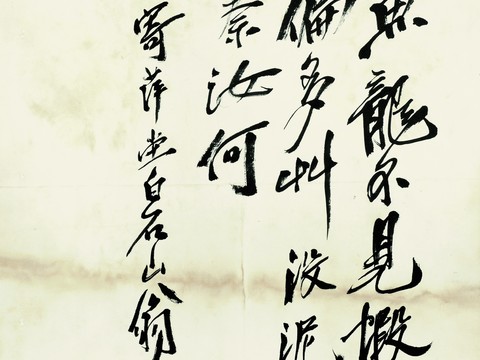 魚龍不見蝦
偏多艸沒泥
奈汝何
寄萍堂白石山翁